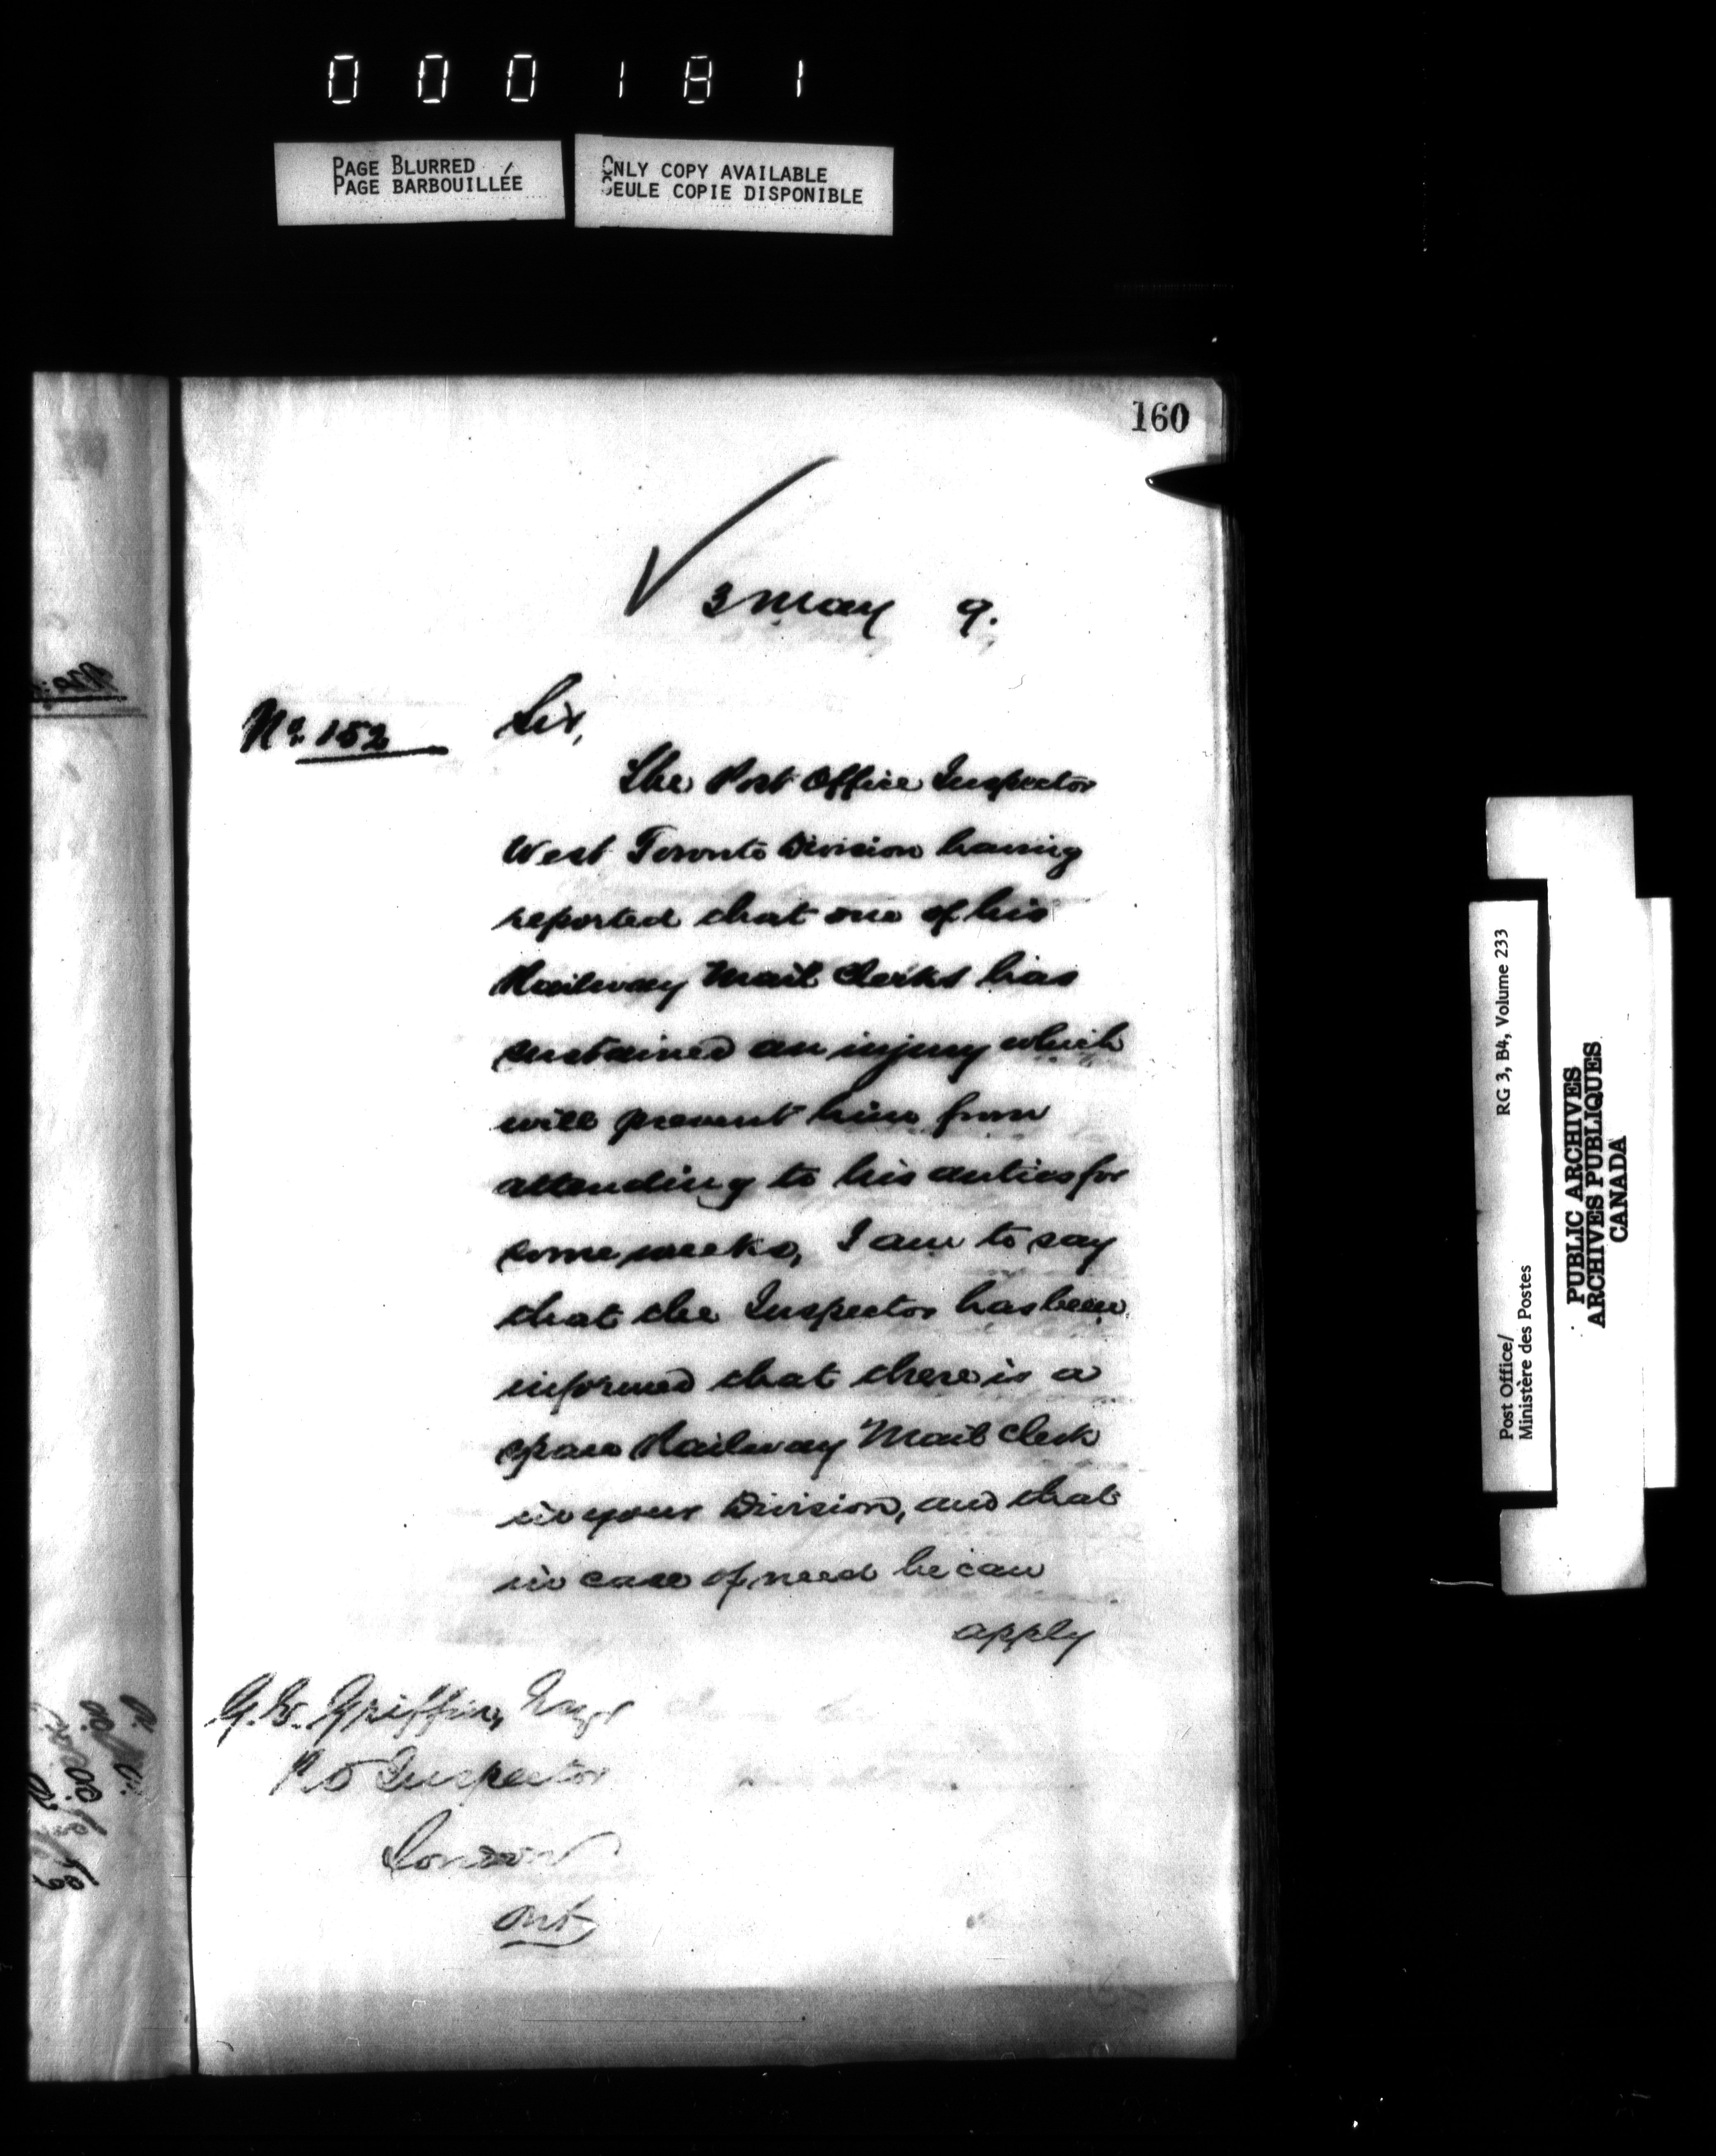 000181
PAGE BLURRED
PAGE BARBOUILLÉE
ONLY COPY AVAILABLE
SEULE COPIE DISPONIBLE
160
3 May 9.
No. 152
Sir,
The Post Office Inspector
West Toronto Division having
reported that one of his
Railway Mail Clerks has
sustained an injury which
will prevent him from
attending to his duties for
some weeks, I am to say
that the Inspector has been
informed that there is a
spare Railway Mail Clerk
in your Division, and that
in case of need he can
apply
G. W. Griffin, Esqr
P.O Inspector
London
Ont
Post Office/
Ministère des Postes
RG 3, B4, Volume 233
PUBLIC ARCHIVES
ARCHIVES PUBLIQUES
CANADA